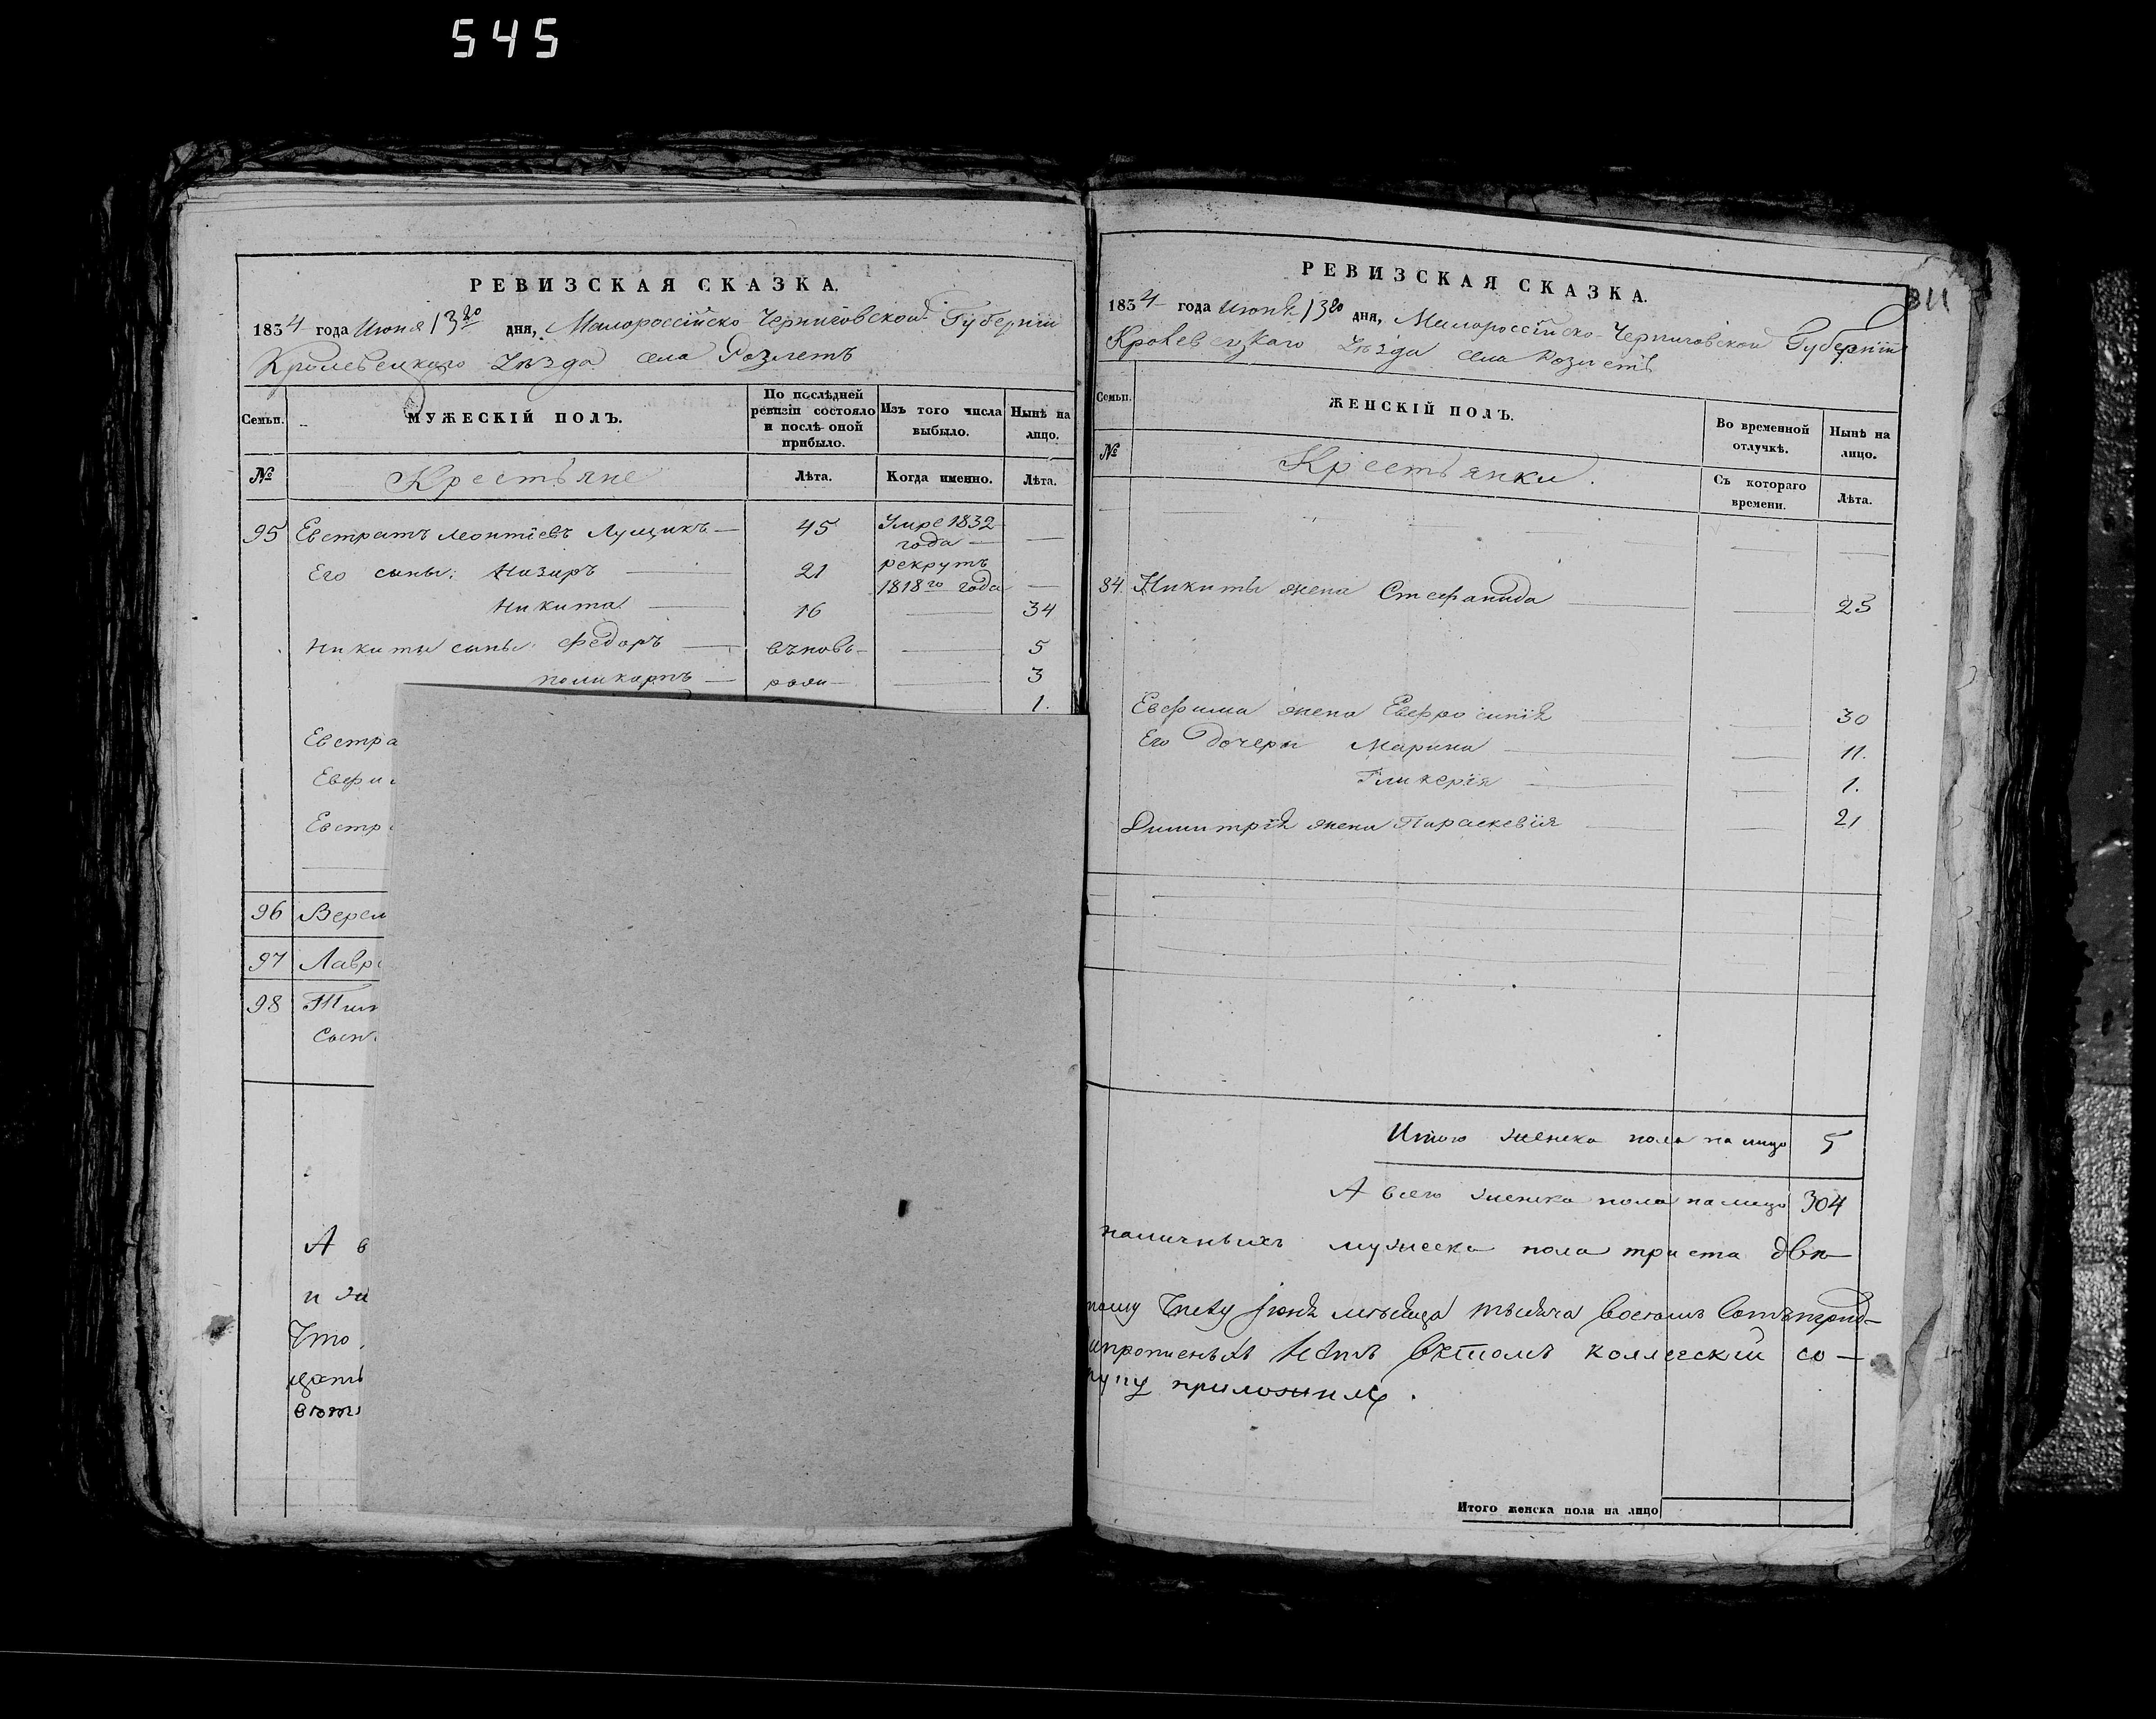 545
РЕВИЗСКАЯ СКАЗКА.
1834 года Июня 13го дня, Малороссійско Черниговской Губерніи
Кролевецкаго Уѣзда села Розлетъ
Семьи. МУЖЕСКІЙ ПОЛЪ. По послѣдней ревизіи состояло и послѣ оной прибыло. Изъ того числа выбыло. Нынѣ на лицо.
№ Крестьяне Лѣта. Когда именно. Лѣта.
95 Евстратъ Леонтіевъ Лущикъ — 45 Умре 1832 года — —
Его сыны: Назиръ — 21 рекрутъ 1818го года —
Никита — 16 — 34
Никиты сыны: Федоръ — вновь — — 5
поликарпъ — рож — — 3
1.
Евстра
Евфи
Евстр
96 Верем
97 Лавр
98 Тим
Сын
А в
и
Что
цать
РЕВИЗСКАЯ СКАЗКА.
311
1834 года Июня 13го дня, Малороссійско Черниговской Губерніи
Кролевецкаго Уѣзда села Розлетъ
Семьи. ЖЕНСКІЙ ПОЛЪ. Во временной отлучкѣ. Нынѣ на лицо.
№ Крестьянки. Съ котораго времени. Лѣта.
84. Никиты жена Стефанида — — 25
Евфима жена Евфросинія — 30
Его дочери Марина — — 11.
Гликерія — — 1.
Димитрія жена Параскевія — — 21
Итого женска пола на лицо 5
А всего женска пола на лицо 304
наличныхъ мужеска пола триста две
нему Іюня мѣсяца тысяча восемь сотъ
коллежскій со —
руку приложилъ.
Итого женска пола на лицо